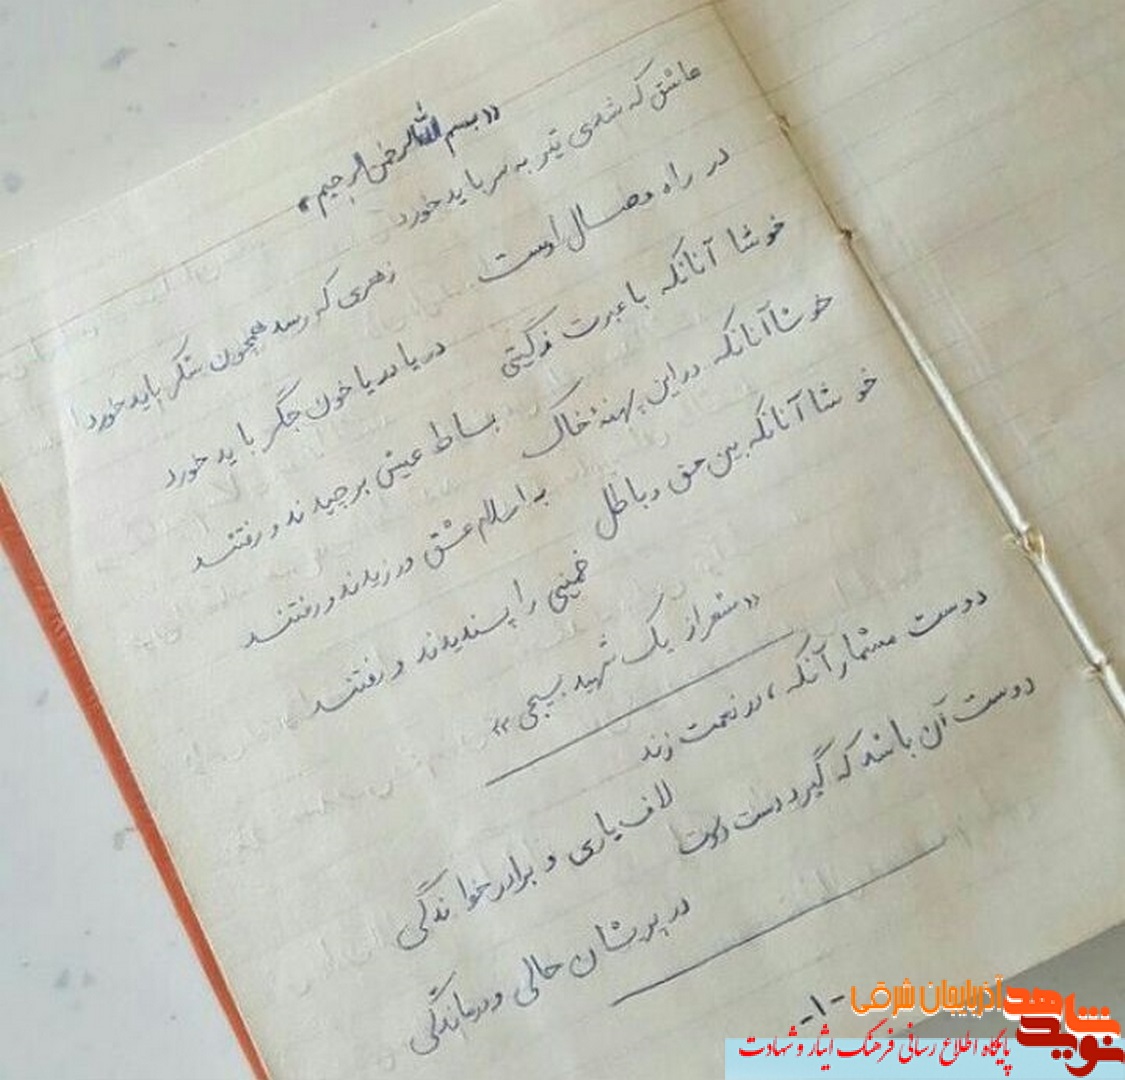 «بسم الله الرحمن الرحیم»
عاشق که شدی تیر به سر باید خورد
زهری که رسد همچون شکر باید خورد
در راه وصال اوست
دریا دریا خون جگر باید خورد
خوشا آنانکه با عبرت ز گیتی
بساط عیش برچیدند و رفتند
خوشا آنانکه در این پهنهٔ خاک
به اسلام عشق ورزیدند و رفتند
خوشا آنانکه بین حق و باطل
خمینی را پسندیدند و رفتند
«شعر از یک شهید بسیجی»
دوست مشمار آنکه، در نعمت زند
لاف یاری و برادر خواندگی
دوست آن باشد که گیرد دست دوست
در پریشان حالی و درماندگی
-۱-
نوید شاهد
آذربایجان شرقی
پایگاه اطلاع رسانی فرهنگ ایثار و شهادت